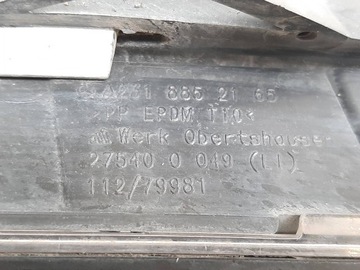 A231 885 21 65
>PP EPDM T10<
Werk Obertshausen
27540.0 049 (LI)
112/79981